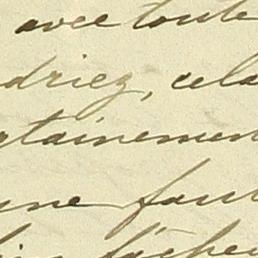 avec toute
driez, cela
tainement
une faut
fâcher